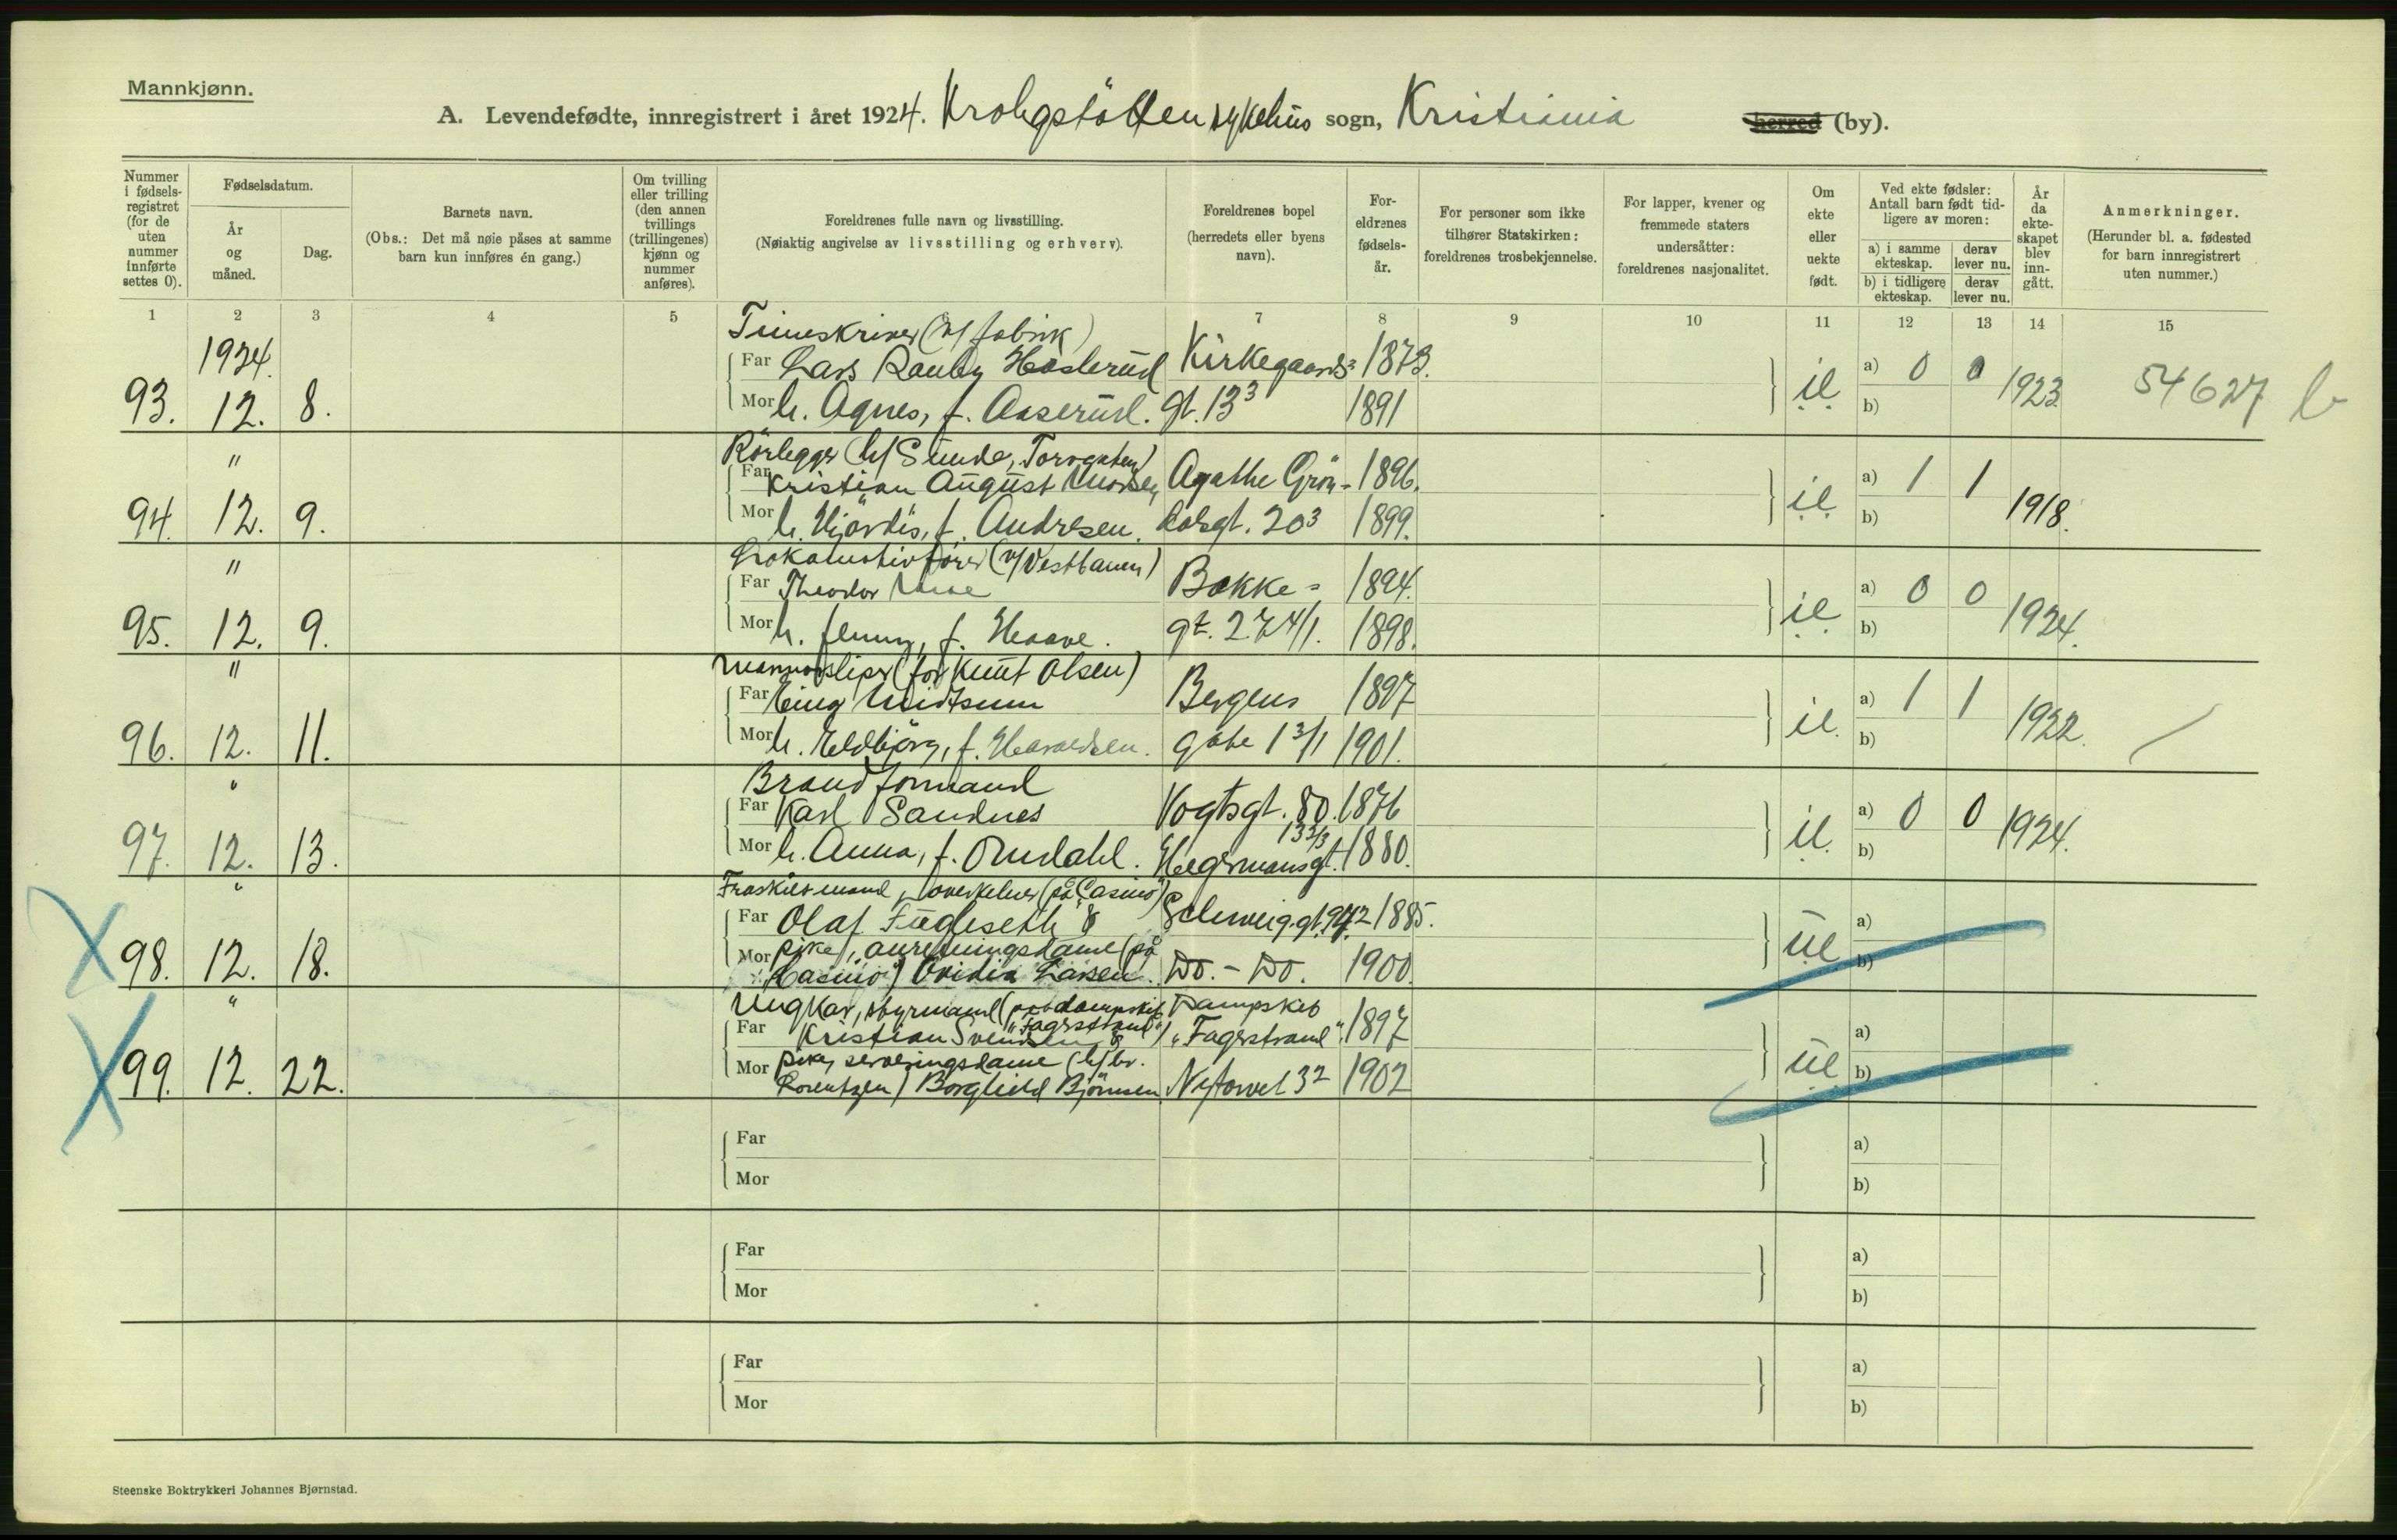 Mannkjønn.
A. Levendefødte, innregistrert i året 1924. Krohgstötten sykehus sogn, Kristiania herred (by).
Nummer i fødselsregistret (for de uten nummer innførte settes 0).
Fødselsdatum.
År og måned.
Dag.
Barnets navn.
(Obs.: Det må nøie påses at samme barn kun innføres én gang.)
Om tvilling eller trilling (den annen tvillings (trillingenes) kjønn og nummer anføres).
Foreldrenes fulle navn og livsstilling.
(Nøiaktig angivelse av livsstilling og erhverv).
Foreldrenes bopel (herredets eller byens navn).
Foreldrenes fødselsår.
For personer som ikke tilhører Statskirken: foreldrenes trosbekjennelse.
For lapper, kvener og fremmede staters undersåtter: foreldrenes nasjonalitet.
Om ekte eller uekte født.
Ved ekte fødsler: Antall barn født tidligere av moren:
a) i samme ekteskap. derav lever nu.
b) i tidligere ekteskap. derav lever nu.
År da ekteskapet blev inngått.
Anmerkninger.
(Herunder bl. a. fødested for barn innregistrert uten nummer.)
1 2 3 4 5 7 8 9 10 11 12 13 14 15
1924
Timeskriver (v/ fabrik)
Far Lars Rauby Haslerud Kirkegaards- 1873. a) 0 0
93. 12. 8. Mor h. Agnes, f. Aaserud. gt. 13³ 1891 il. b) 1923 54627
" Rörlegger (h/ Sunde, Torvgaten)
Far Kristian August Monsen Agathe Grön- 1896. a) 1 1
94. 12. 9. Mor h. Hjördis, f. Andresen. dalsgt. 20³ 1899. il. b) 1918.
" Lokomotivförer (v/ Vestbanen)
Far Theodor Bakke- 1894. a) 0 0
95. 12. 9. Mor h. Jenny, f. Haave. gt. 27 4/1. 1898. il. b) 1924.
" Marmorsliper (for Knut Olsen)
Far Einar Bergens 1897 a) 1 1
96. 12. 11. Mor h. Eldbjörg, f. Haraldsen. gate 1 3/1 1901. il. b) 1922.
" Brandformand
Far Karl Sandnes Vogtsgt. 80. 1876 a) 0 0
97. 12. 13. Mor h. Anna, f. Omdahl. Hegermansgt. 13 2/3 1880. il. b) 1924.
" Fraskilt mand, overkelner (på "Casino")
Far Olaf Fugleseth & Schweig.gt. 1885. a)
98. 12. 18. Mor pike, anretningsdame (på
"Casino") Ovidia Larsen. Do. - Do. 1900 ue. b)
" Ungkar, styrmand (på dampskib Dampskib
Far "Fagerstrand") Kristian Svendsen & "Fagerstrand". 1897 a)
99. 12. 22. Mor pike, serveringsdame (h/ hr.
Lorentzen) Borghild Björnsen Nytorvet 3² 1902 ue. b)
Far a)
Mor b)
Far a)
Mor b)
Far a)
Mor b)
Steenske Boktrykkeri Johannes Bjørnstad.